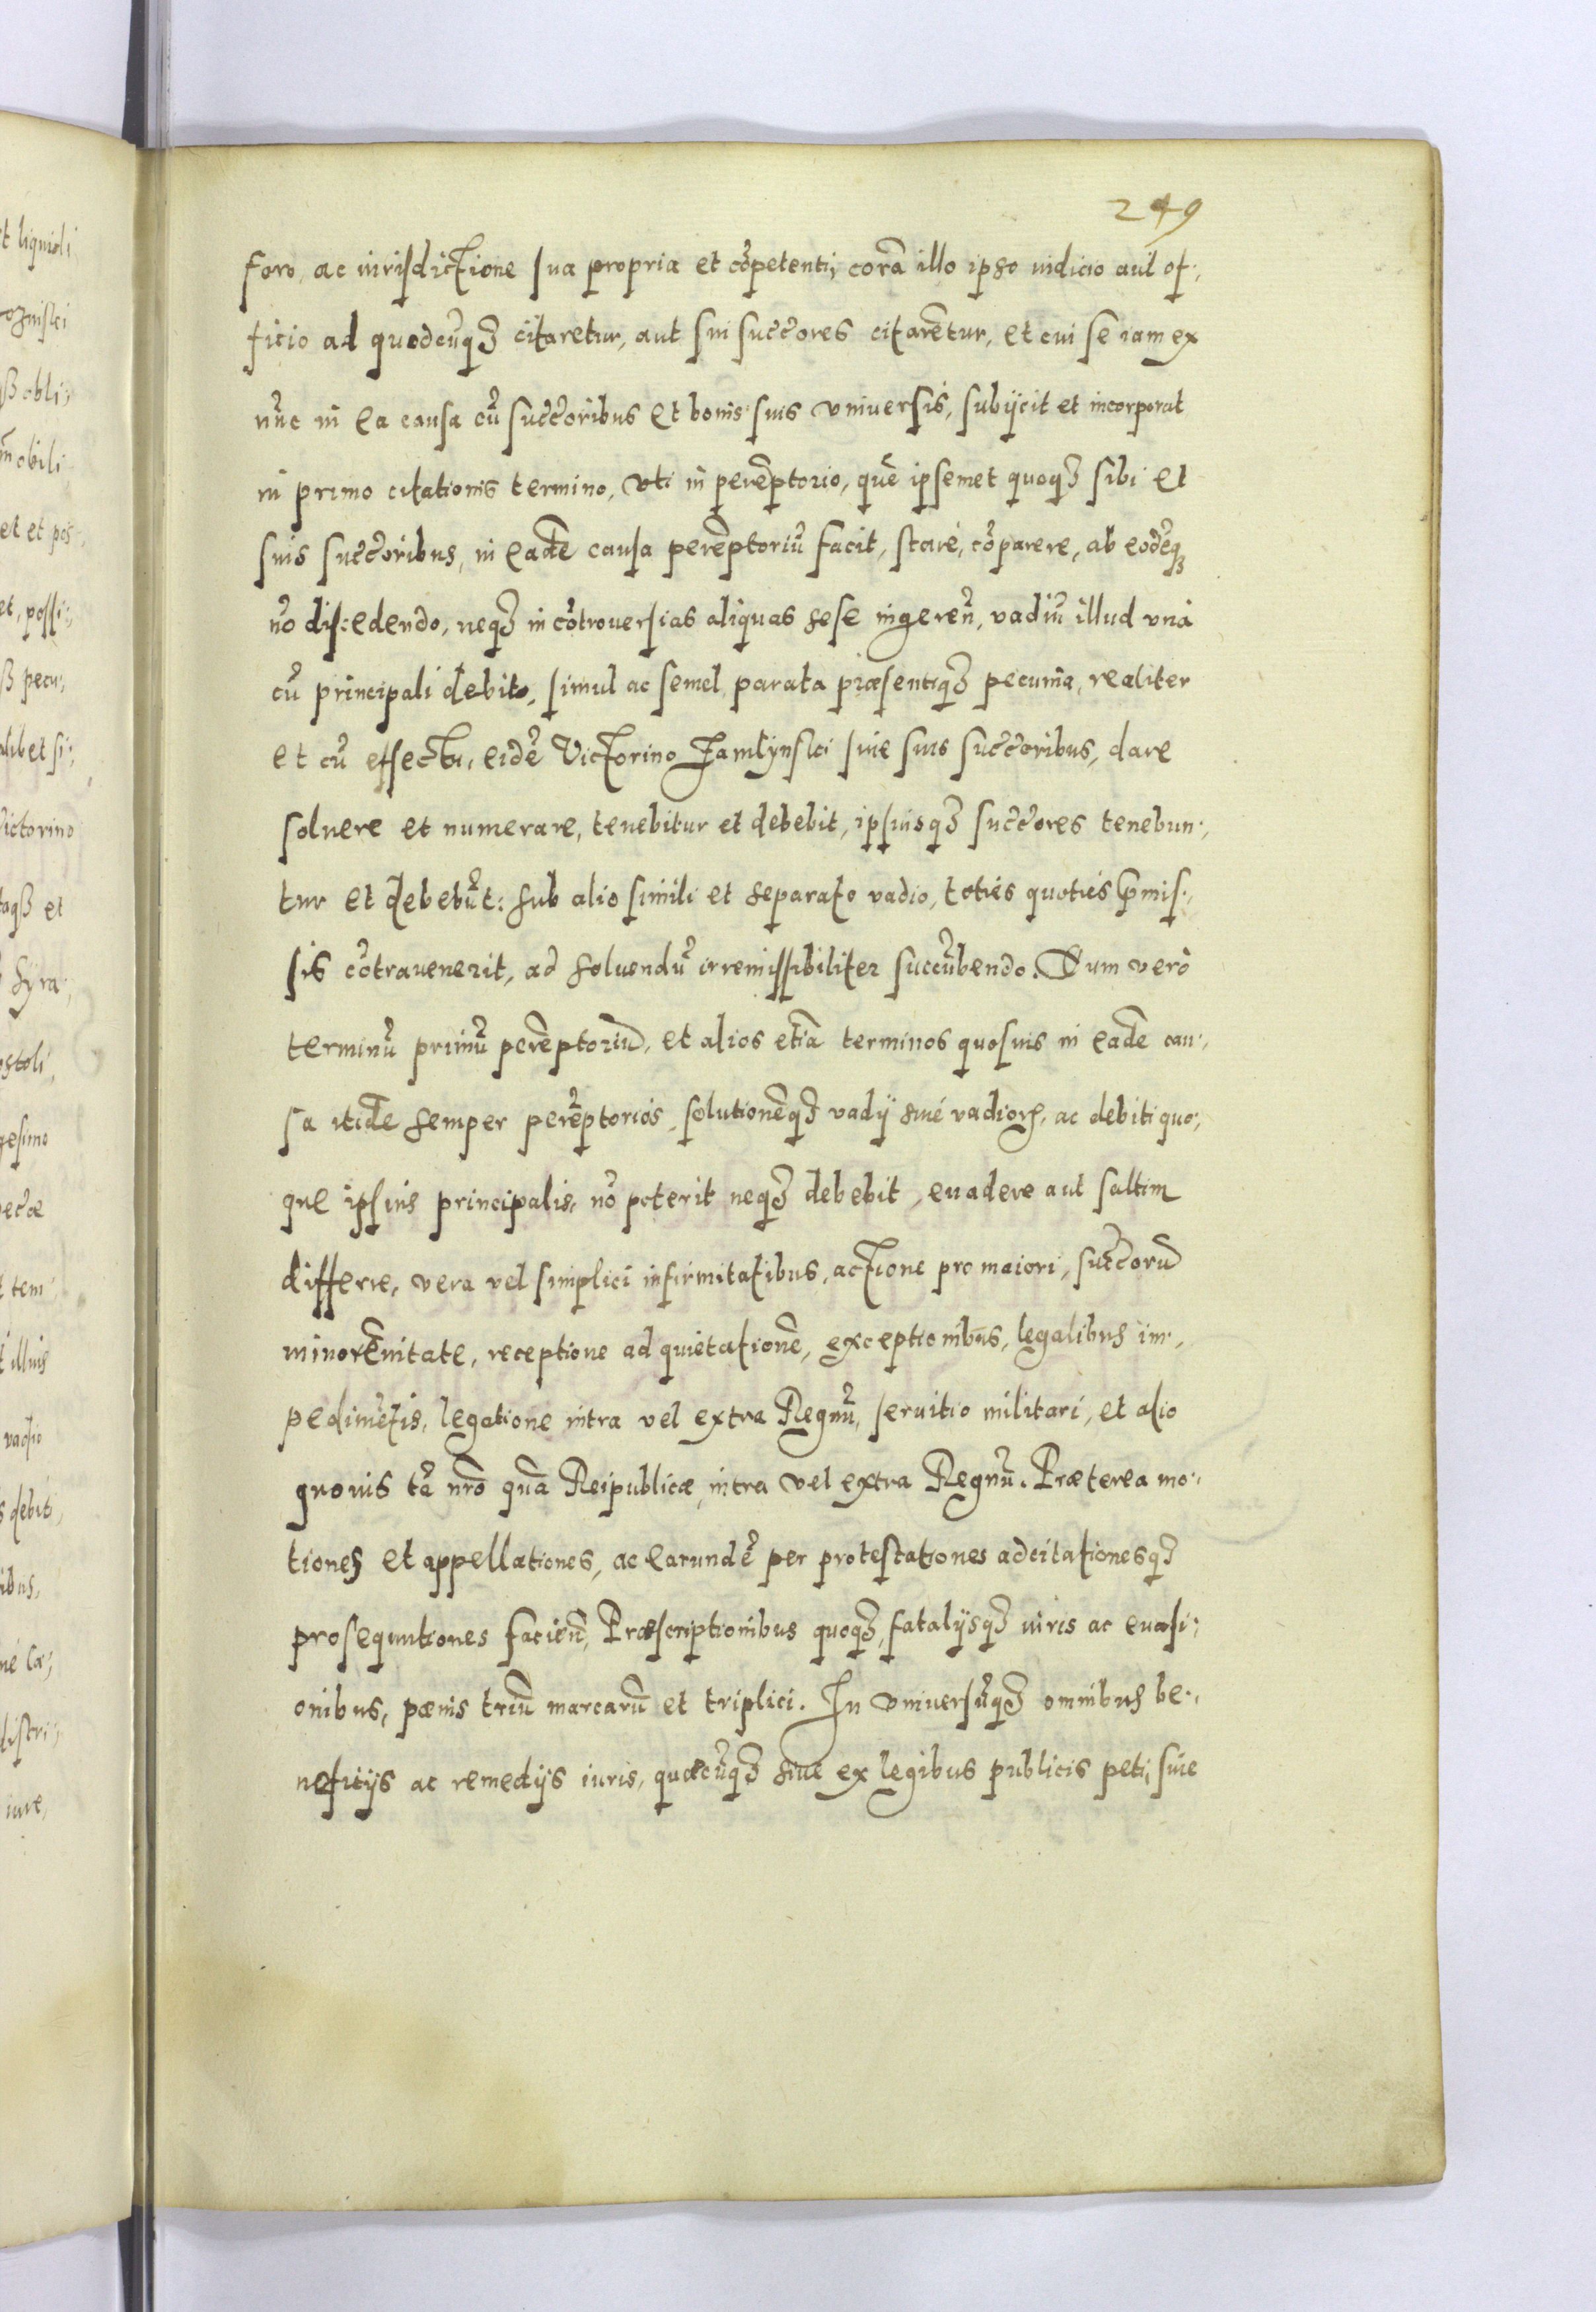 249
foro, ac iurisdictione sua propria et cõpetenti, corã illo ipso iudicio aut of,
ficio ad quodcũq3 citaretur, aut sui succ̃ores citarẽtur, et cui se iam ex
nũc in ea causa cũ succ̃oribus et bonis suis vniuersis, subijcit et incorporat
in primo citationis termino, vti in perẽptorio, quẽ ipsemet quoq3 sibi et
suis succ̃oribus, in eadẽ causa perẽptoriũ facit, stare, cõparere, ab eodẽq3
nõ discedendo, neq3 in cõtrouersias aliquas sese ingereñ, vadiũ illud vnà
cũ principali debito, simul ac semel, parata præsentiq3 pecunia, realiter
et cũ effectu, eidẽ Victorino Jamlÿnski siue suis succ̃oribus, dare
soluere et numerare, tenebitur et debebit, ipsiusq3 succ̃ores tenebun,
tur et debebũt: sub alio simili et separato vadio, toties quoties p̃mis,
sis cõtrauenerit, ad soluendũ irremissibiliter succũbendo. Dum verò
terminũ primũ perẽptoriũ, et alios etiã terminos quosuis in eadẽ cau,
sa itidẽ semper perẽptorios, solutionẽq3 vadÿ siue vadiorꝭ, ac debiti quo,
que ipsius principalis, nõ poterit neq3 debebit, euadere aut saltim
differre, vera vel simplici infirmitatibus, actione pro maiori, succ̃orũ
minorẽnitate, receptione ad quietationẽ, exceptionibus, legalibus im,
pedimẽtis, legatione intra vel extra Regnũ, seruitio militari, et alio
quouis tã nr̃o quã Reipublicæ, intra vel extra Regnũ. Præterea mo,
tiones et appellationes, ac earundẽ per protestationes adcitationesq3
prosequutiones facieñ, Præscriptionibus quoq3, fatalÿsq3 iuris ac euasi,
onibus, pænis triũ marcarũ et triplici. In vniuersũq3 omnibus be,
neficÿs ac remedÿs iuris, quæcũq3 siue ex legibus publicis peti, siue